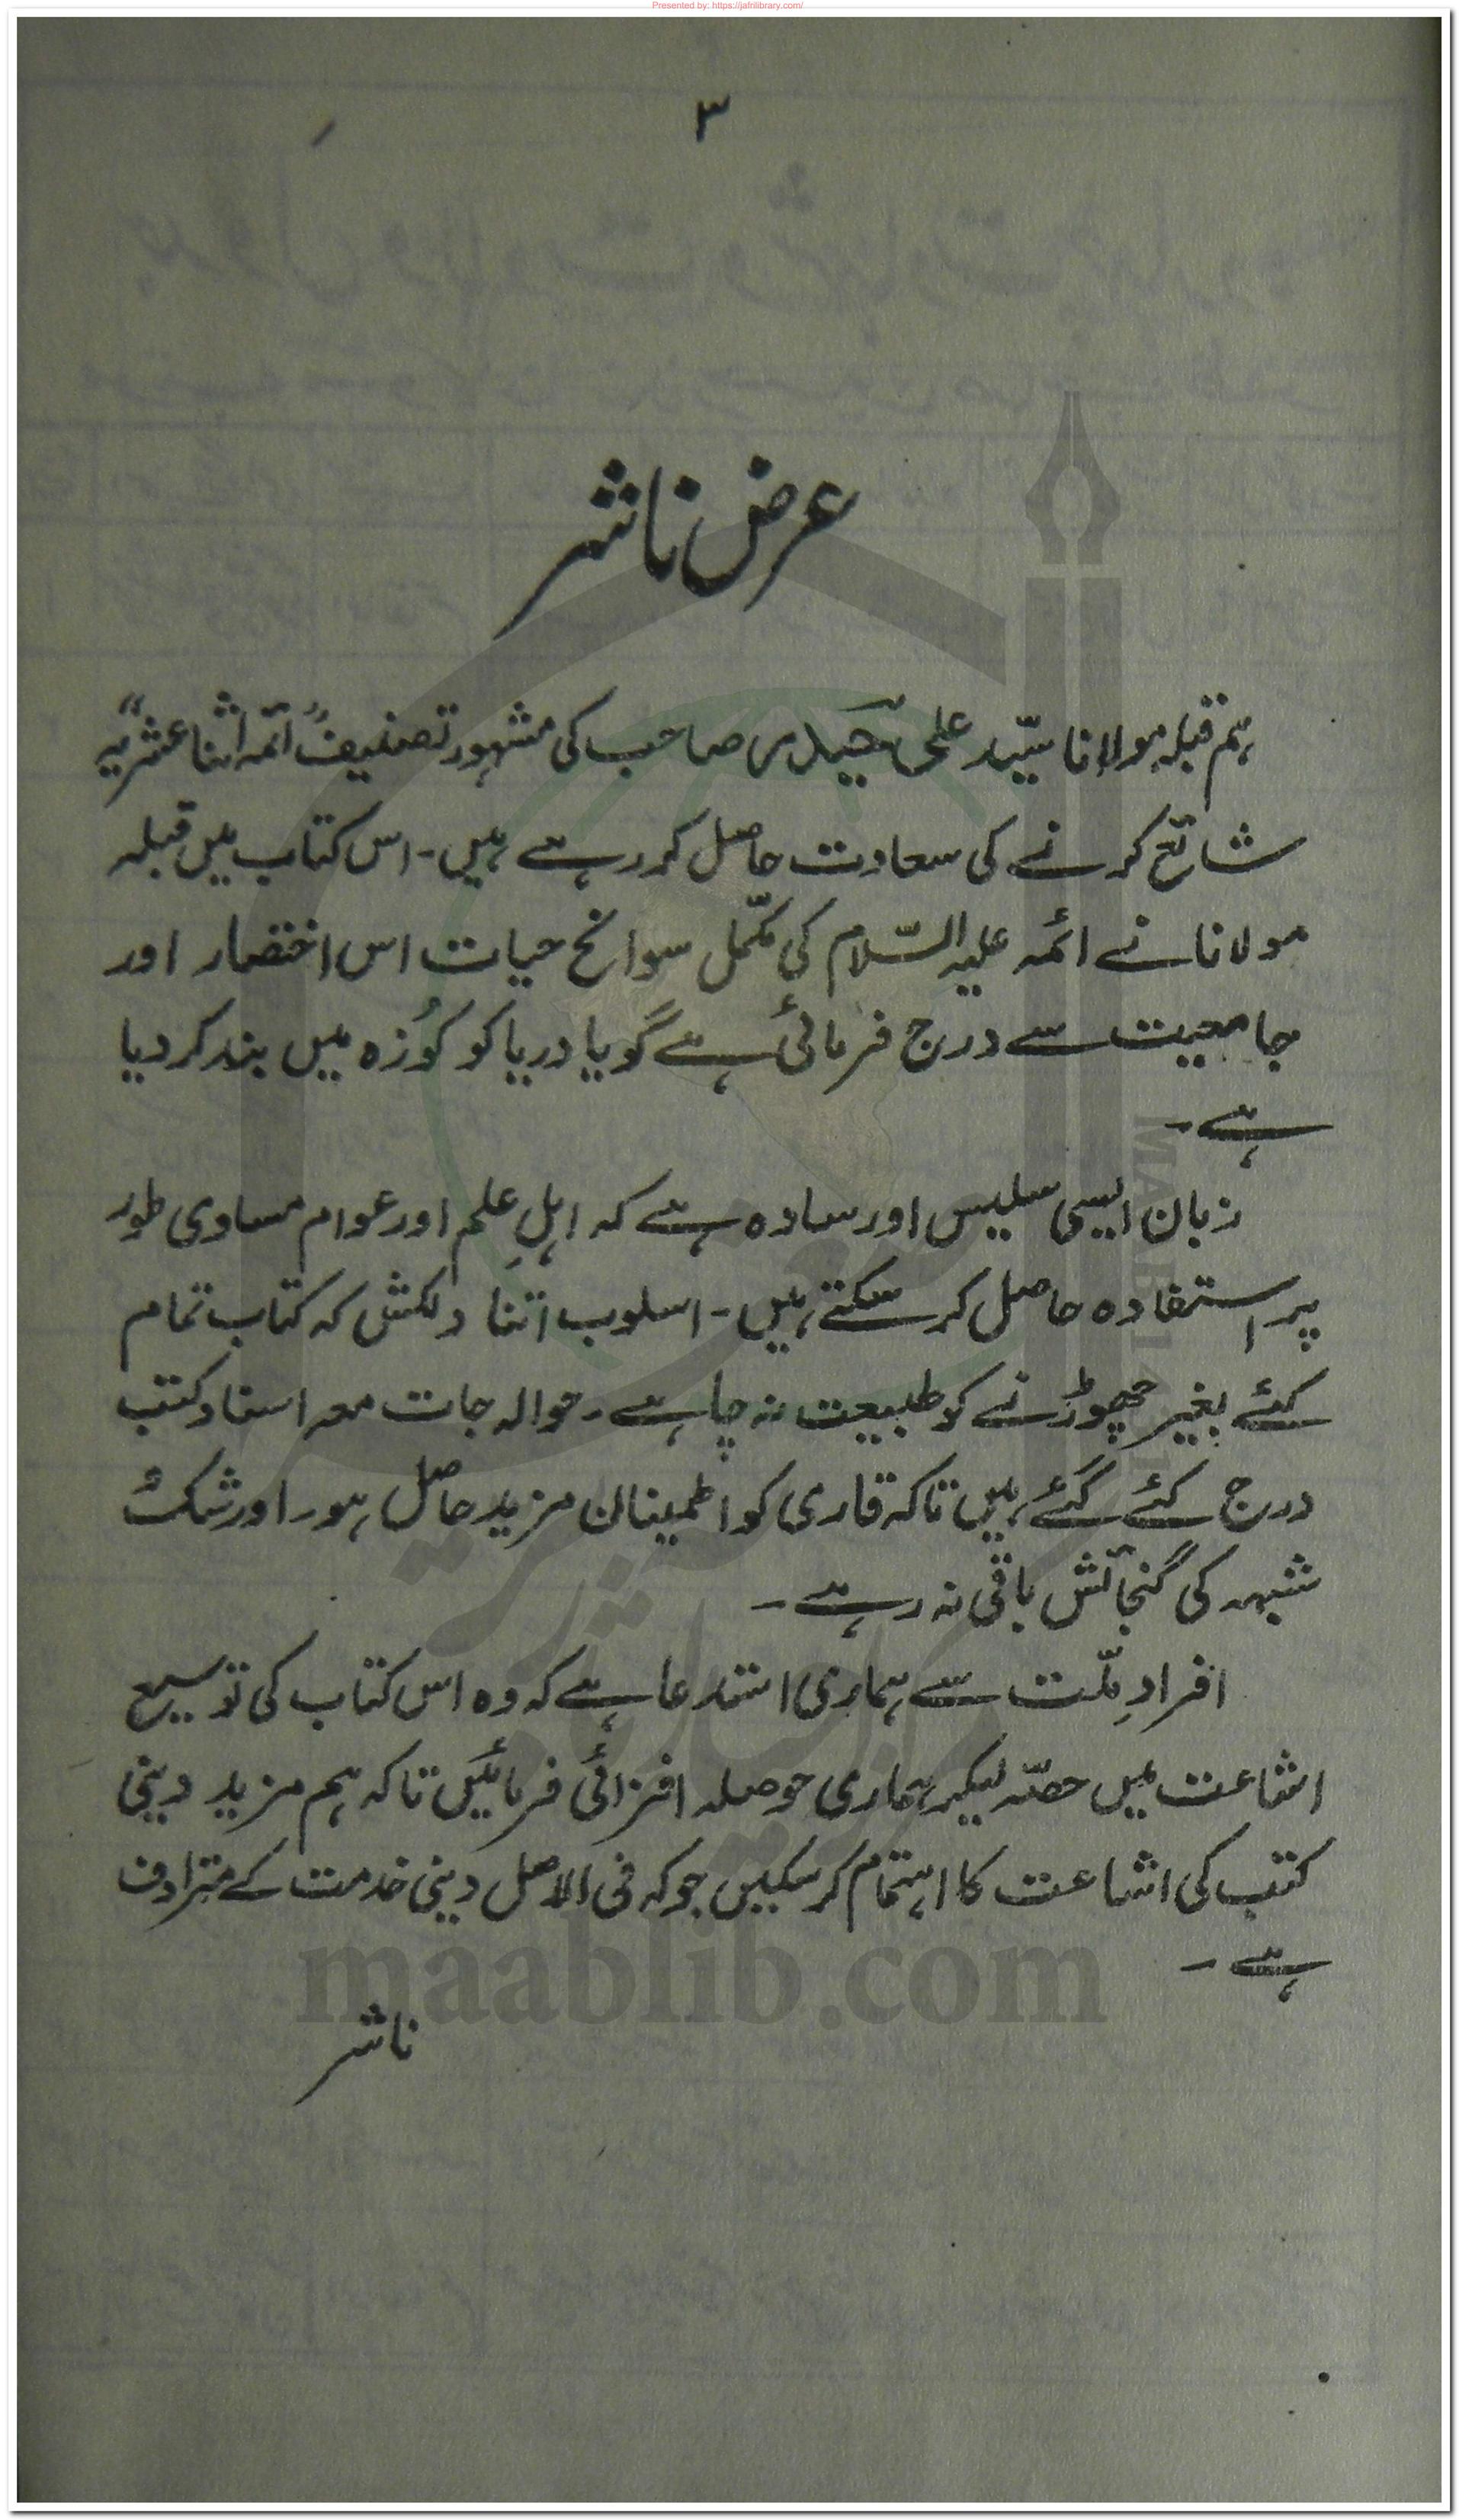 Presented by: https://jafrilibrary.com/
۳
عرض ناشر
ہم قبلہ مولانا سیّد علی حیدری صاحب کی مشہور تصنیف "ائمہ اثنا عشریہ"
شائع کرنے کی سعادت حاصل کر رہے ہیں - اس کتاب میں قبلہ
مولانا نے ائمہ علیہ السّلام کی مکمّل سوانح حیات اس اختصار اور
جامعیت سے درج فرمائی ہے گویا دریا کو کُوزہ میں بند کر دیا
ہے -
زبان ایسی سلیس اور سادہ ہے کہ اہلِ علم اور عوام مساوی طور
پر استفادہ حاصل کر سکتے ہیں - اسلوب اتنا دلکش کہ کتاب تمام
کئے بغیر چھوڑنے کو طبیعت نہ چاہے - حوالہ جات معہ اسناد کتب
درج کئے گئے ہیں تاکہ قاری کو اطمینان مزید حاصل ہو - اور شک و
شبہہ کی گنجائش باقی نہ رہے -
افرادِ ملّت سے ہماری استدعا ہے کہ وہ اس کتاب کی توسیع
اشاعت میں حصّہ لیکر ہماری حوصلہ افزائی فرمائیں تاکہ ہم مزید دینی
کتب کی اشاعت کا اہتمام کر سکیں جو کہ فی الاصل دینی خدمت کے مترادف
ہے -
ناشر
maablib.com